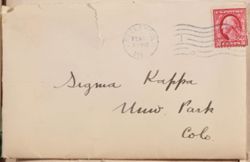 Sigma Kappa
Univ. Park
Colo